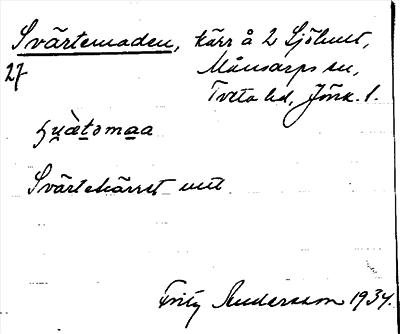 Svärtemaden, kärr å 2 Sjölunt,
27 Månsarps sn,
Tveta hd, Jönk. l.
Svärtekärret unt.
Fritz Andersson 1934.